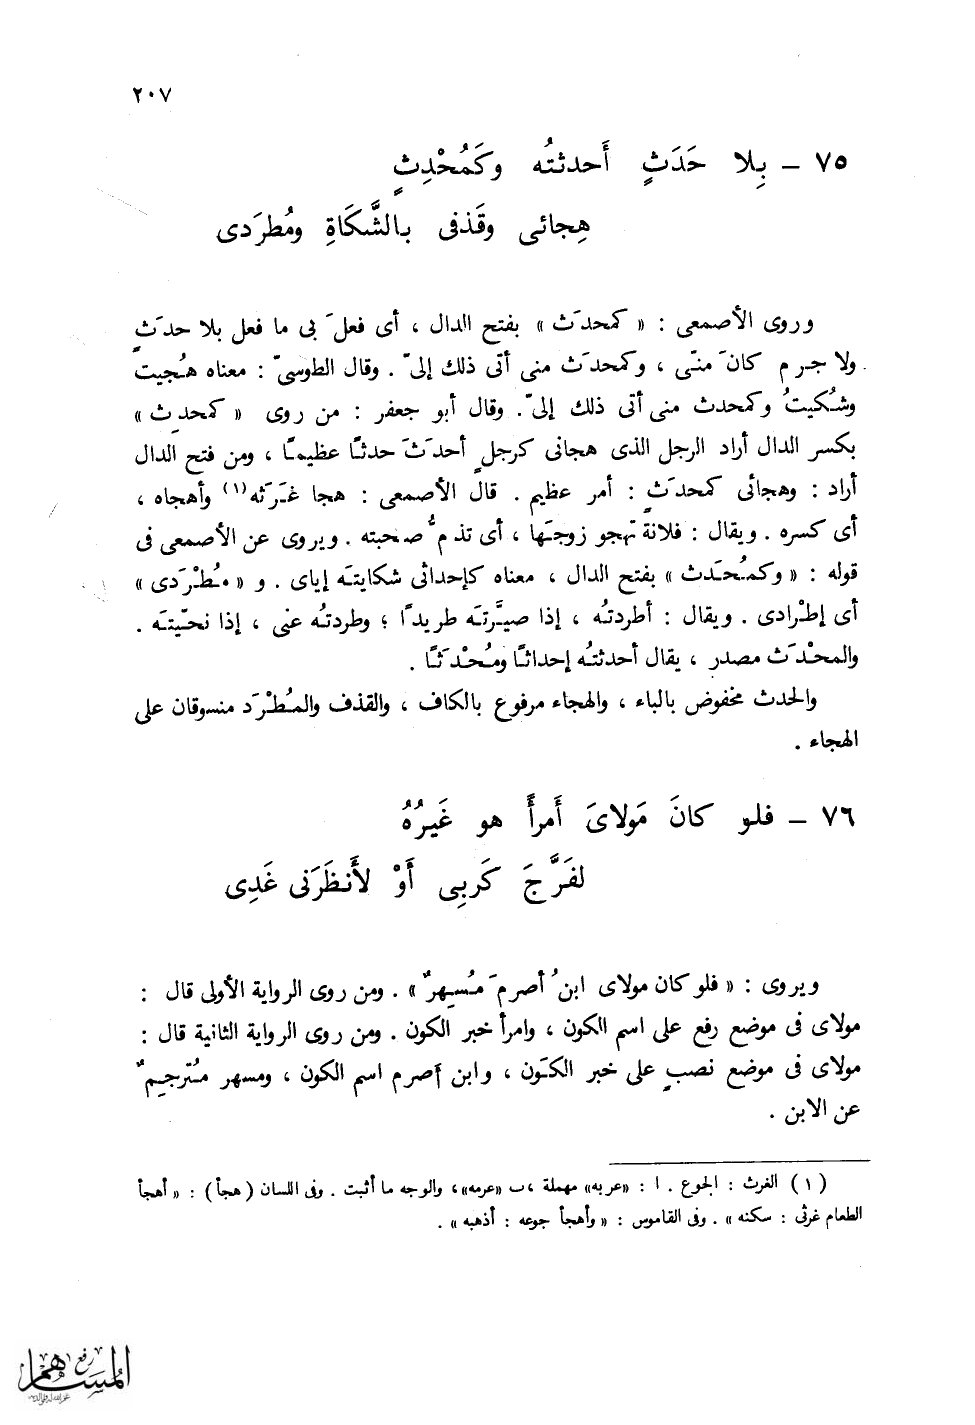 ٢٠٧
٧٥ – بِلا حَدَثٍ أَحدثتُه وكَمُحْدِثٍ
هِجائى وقَذفى بالشَّكَاةِ ومُطرَدى
وروى الأصمعى : « كمحدَث » بفتح الدال ، أى فعلَ بى ما فعل بلا حدَثٍ
ولا جرم كانَ منّى ، وكمحدَث منى أتى ذلك إلىّ . وقال الطوسىّ : معناه هُجيت
وشُكيتُ وكمحدث منى أتى ذلك إلىّ. وقال أبو جعفر : من روى « كمحدِث »
بكسر الدال أراد الرجل الذى هجانى كرجلٍ أحدَثَ حدثًا عظيمًا ، ومن فتح الدال
أراد : وهجائى كمحدَثٍ : أمر عظيم . قال الأصمعى : هجا غَرَثه(١) وأهجاه ،
أى كسره . ويقال : فلانة تهجو زوجَها ، أى تذمُّ صحبته . ويروى عن الأصمعى فى
قوله : « وكمُحدَث » بفتح الدال ، معناه كإحداثى شكايتَه إياى . و « مُطْرَدى »
أى إطْرادى . ويقال : أطردتُه ، إذا صيَّرتَه طريدًا ؛ وطردتُه عنى ، إذا نحّيتَه .
والمحْدَث مصدر ، يقال أحدثتُه إحداثًا ومُحْدَثًا .
والحدث مخفوض بالباء ، والهجاء مرفوع بالكاف ، والقذف والمُطْرَد منسوقان على
الهجاء .
٧٦ – فلو كانَ مَولاىَ أَمرأً هو غَيرُهُ
لفَرَّجَ كَربِى أَوْ لأَنظَرَنى غَدِى
ويروى : « فلو كان مولاى ابنُ أصرمَ مُسهرٌ » . ومن روى الرواية الأولى قال :
مولاى فى موضع رفع على اسم الكون ، وامرأ خبر الكون . ومن روى الرواية الثانية قال :
مولاى فى موضع نصبٍ على خبر الكَون ، وابن أصرم اسم الكون ، ومسهر مُترجِمٌ
عن الابن .
(١) الغرث : الجوع . ا : «عربه» مهملة ،ب «عرمه»، والوجه ما أثبت . وفى اللسان ( هجأ ) : « أهجأ
الطعام غرثى : سكنه » . وفى القاموس : « وأهجأ جوعه : أذهبه » .